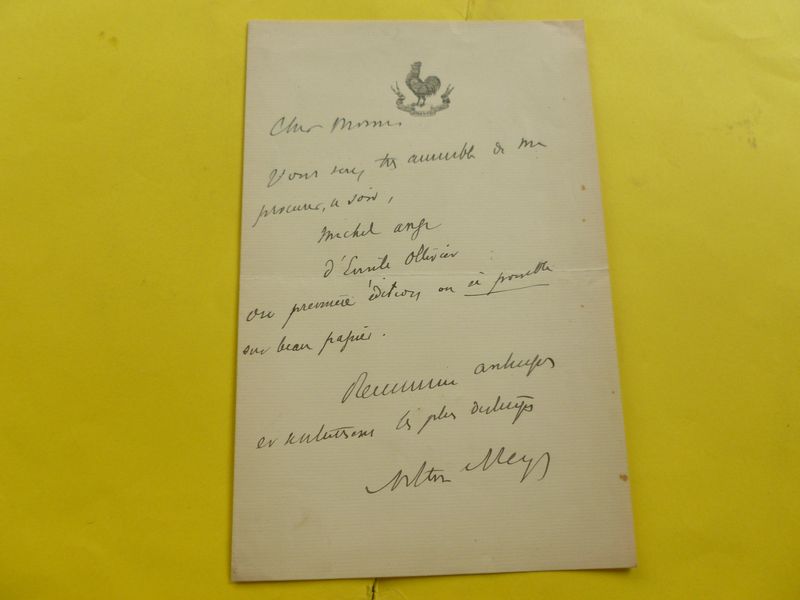 Cher Monsieur
Vous serez très aimable de me
procurer, ce soir,
Michel Ange
d'Emile Ollivier
en première édition ou si possible
sur beau papier.
Remerciements anticipés
et salutations les plus distinguées
Arthur Meyer